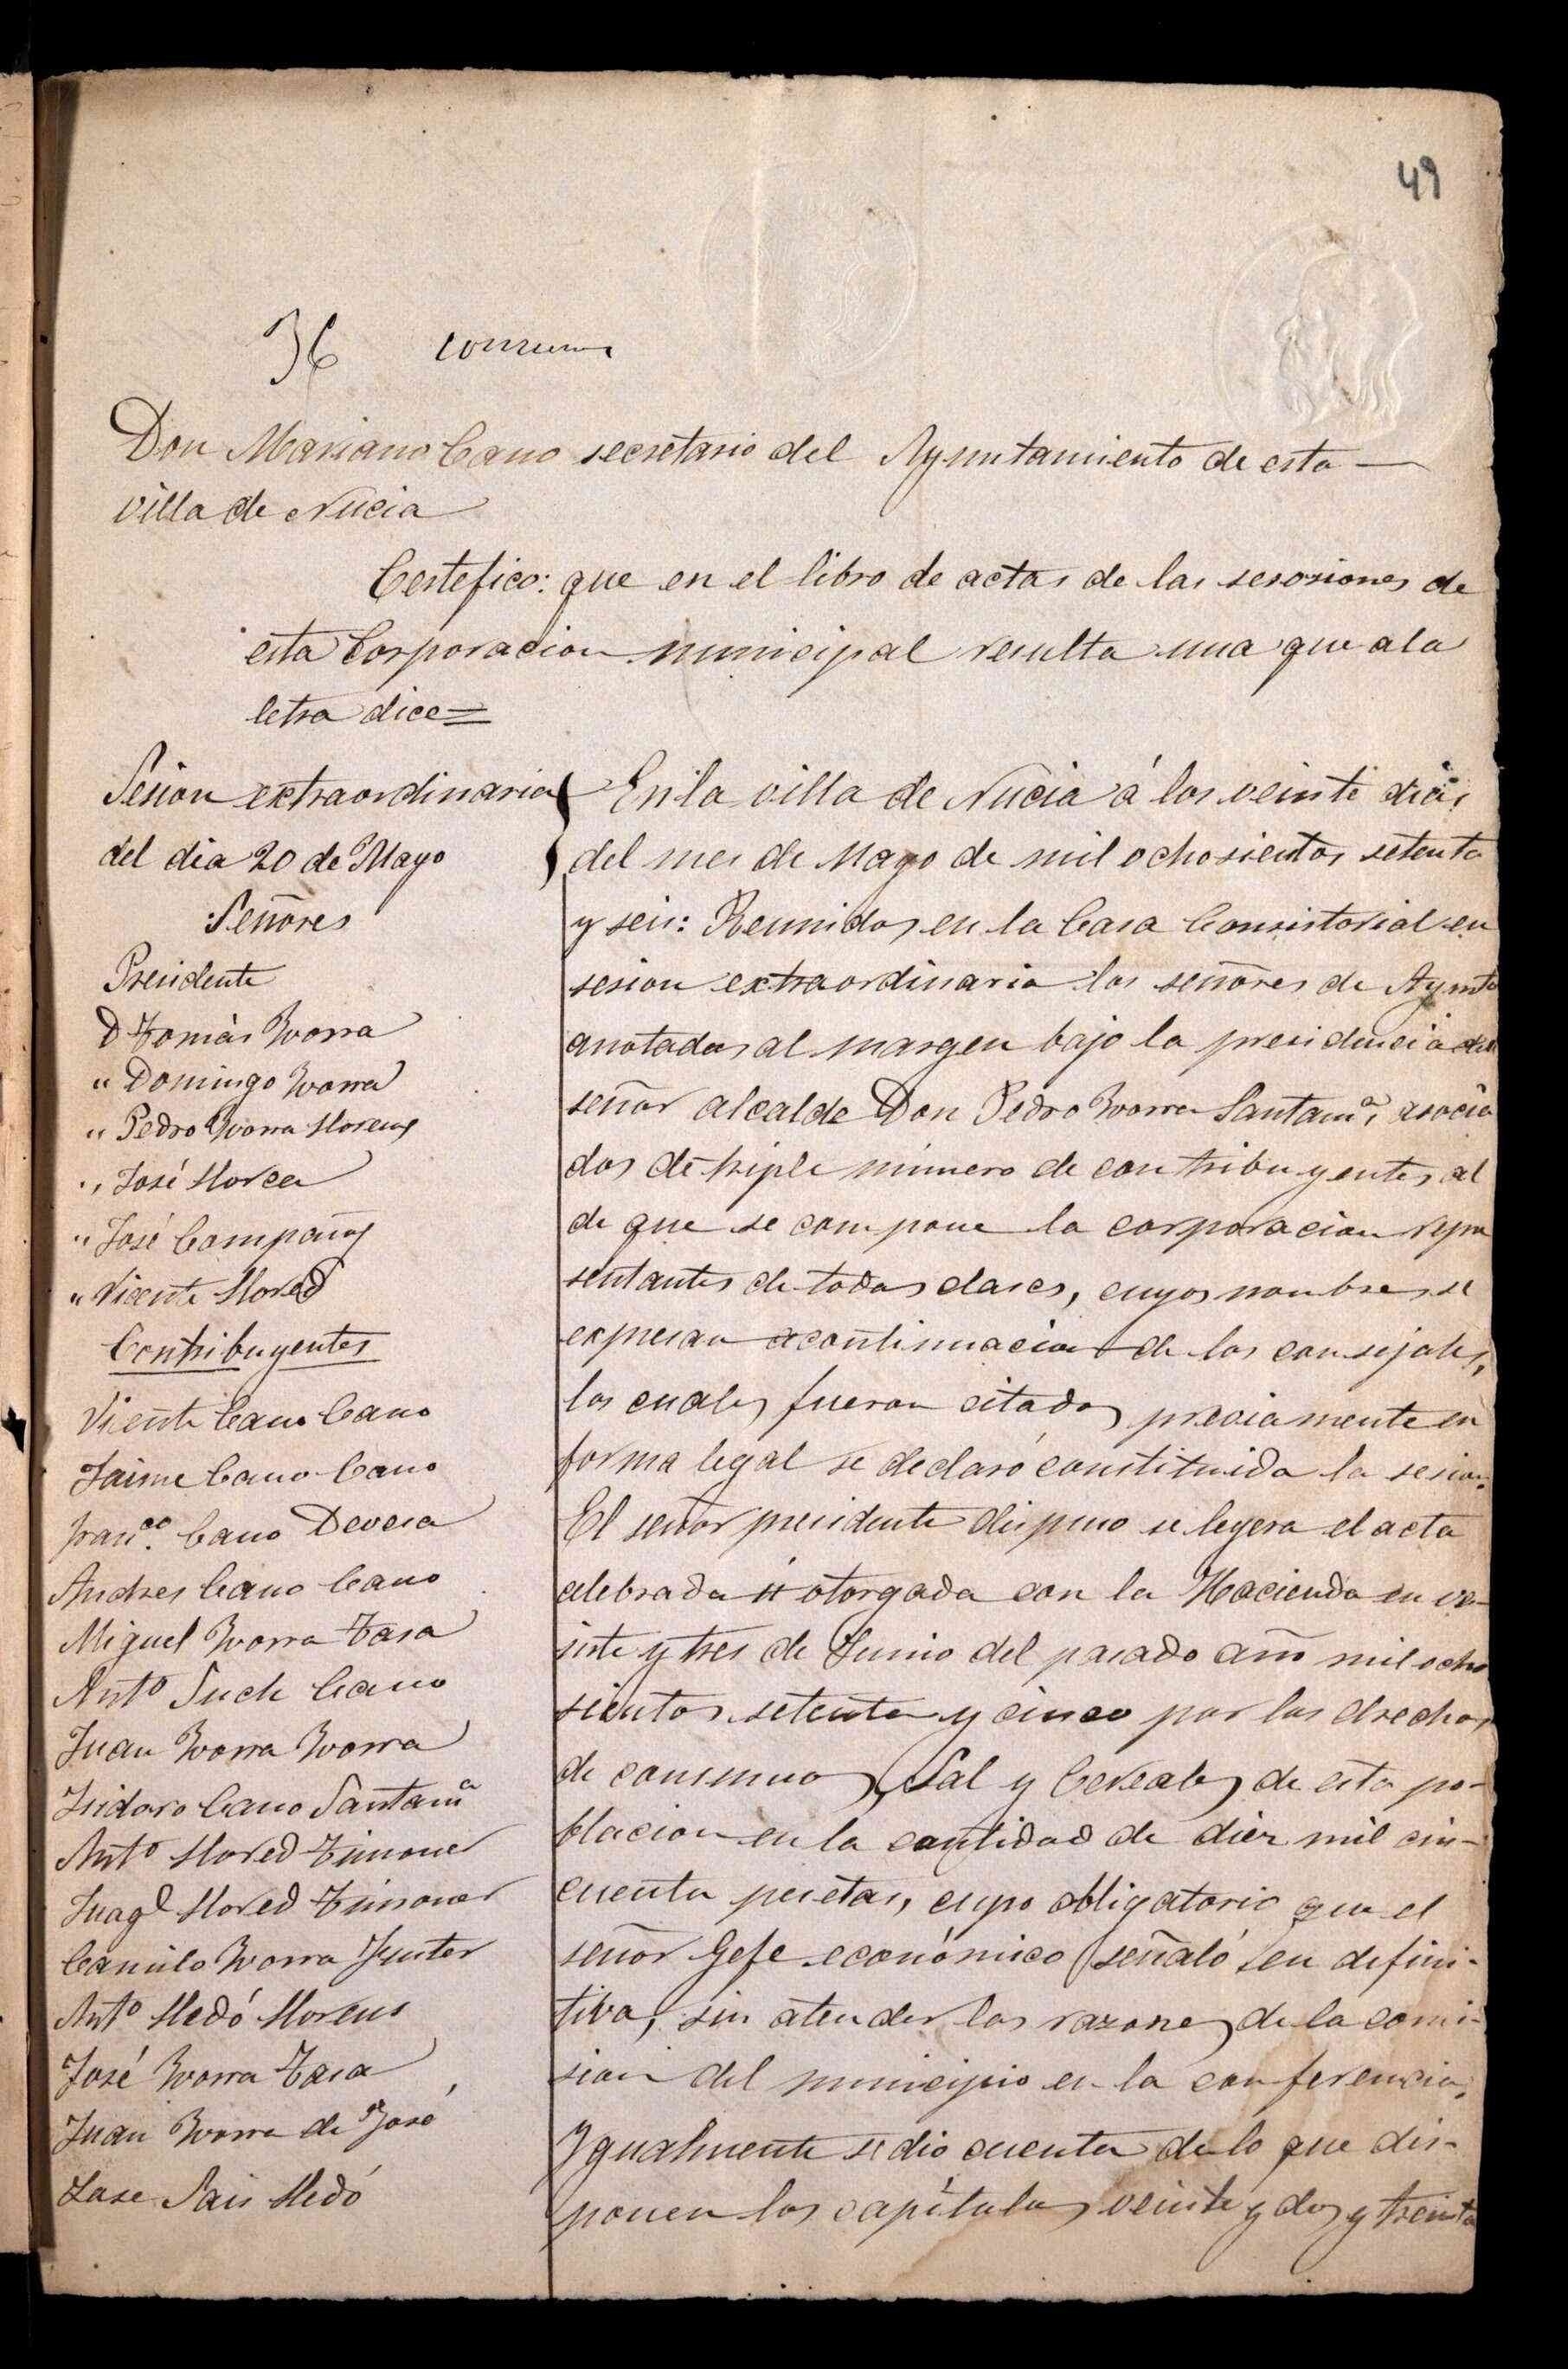 49
36 consumos
Don Mariano Cano secretario del Ayuntamiento de esta —
villa de Nucia
Certefico: que en el libro de actas de las sesosiones de
esta Corporacion municipal resulta una que a la
letra dice=
Sesion extraordinaria
del dia 20 de Mayo
Señores
Presidente
D Tomás Yvorra
" Domingo Yvorra
" Pedro Yvorra Llorens
" José Llorca
" José Compañy
" Vicente Llored
Contribuyentes
Vicente Cano Cano
Jaime Cano Cano
Franco. Cano Devesa
Andres Cano Cano
Miguel Yvorra Tasa
Anto Such Cano
Juan Yvorra Yvorra
Isidoro Cano Santama
Anto Llored Timoner
Juaqd Llored Timoner
Camilo Yvorra
Anto Lledó Llorens
José Yvorra Tasa
Juan Yvorra de José
Jose Sais Lledó
En la villa de Nucia á los veinte dias
del mes de Mayo de mil ochosientos setenta
y seis: Reunidos en la Casa Consistorial en
sesion extraordinaria los señores de Aynto
anotados al margen bajo la presidencia del
señor alcalde Don Pedro Yvorra Santama, asocia
dos de triple número de contribuyentes al
de que se compone la corporacion repre
sentantes de todas clases, cuyos nombres se
expresan acontinuacion de los consejales,
los cuales fueron citados previamente en
forma legal se declaró constituida la sesion.
El señor presidente dispuso se leyera el acta
celebrada ú otorgada con la Hacienda en ve-
inte y tres de Junio del pasado año mil ocho
sientos setenta y cinco por los drechos
de consumos, Sal y Cereales de esta po-
blacion en la cantidad de diez mil cin-
cuenta pesetas, cupo obligatorio que el
señor Gefe económico señaló en defini-
tiva, sin atender las razones de la comi-
sion del municipio en la conferencia,
Ygualmente se dio cuenta de lo que dis-
ponen los capítulos veinte y dos y treinta